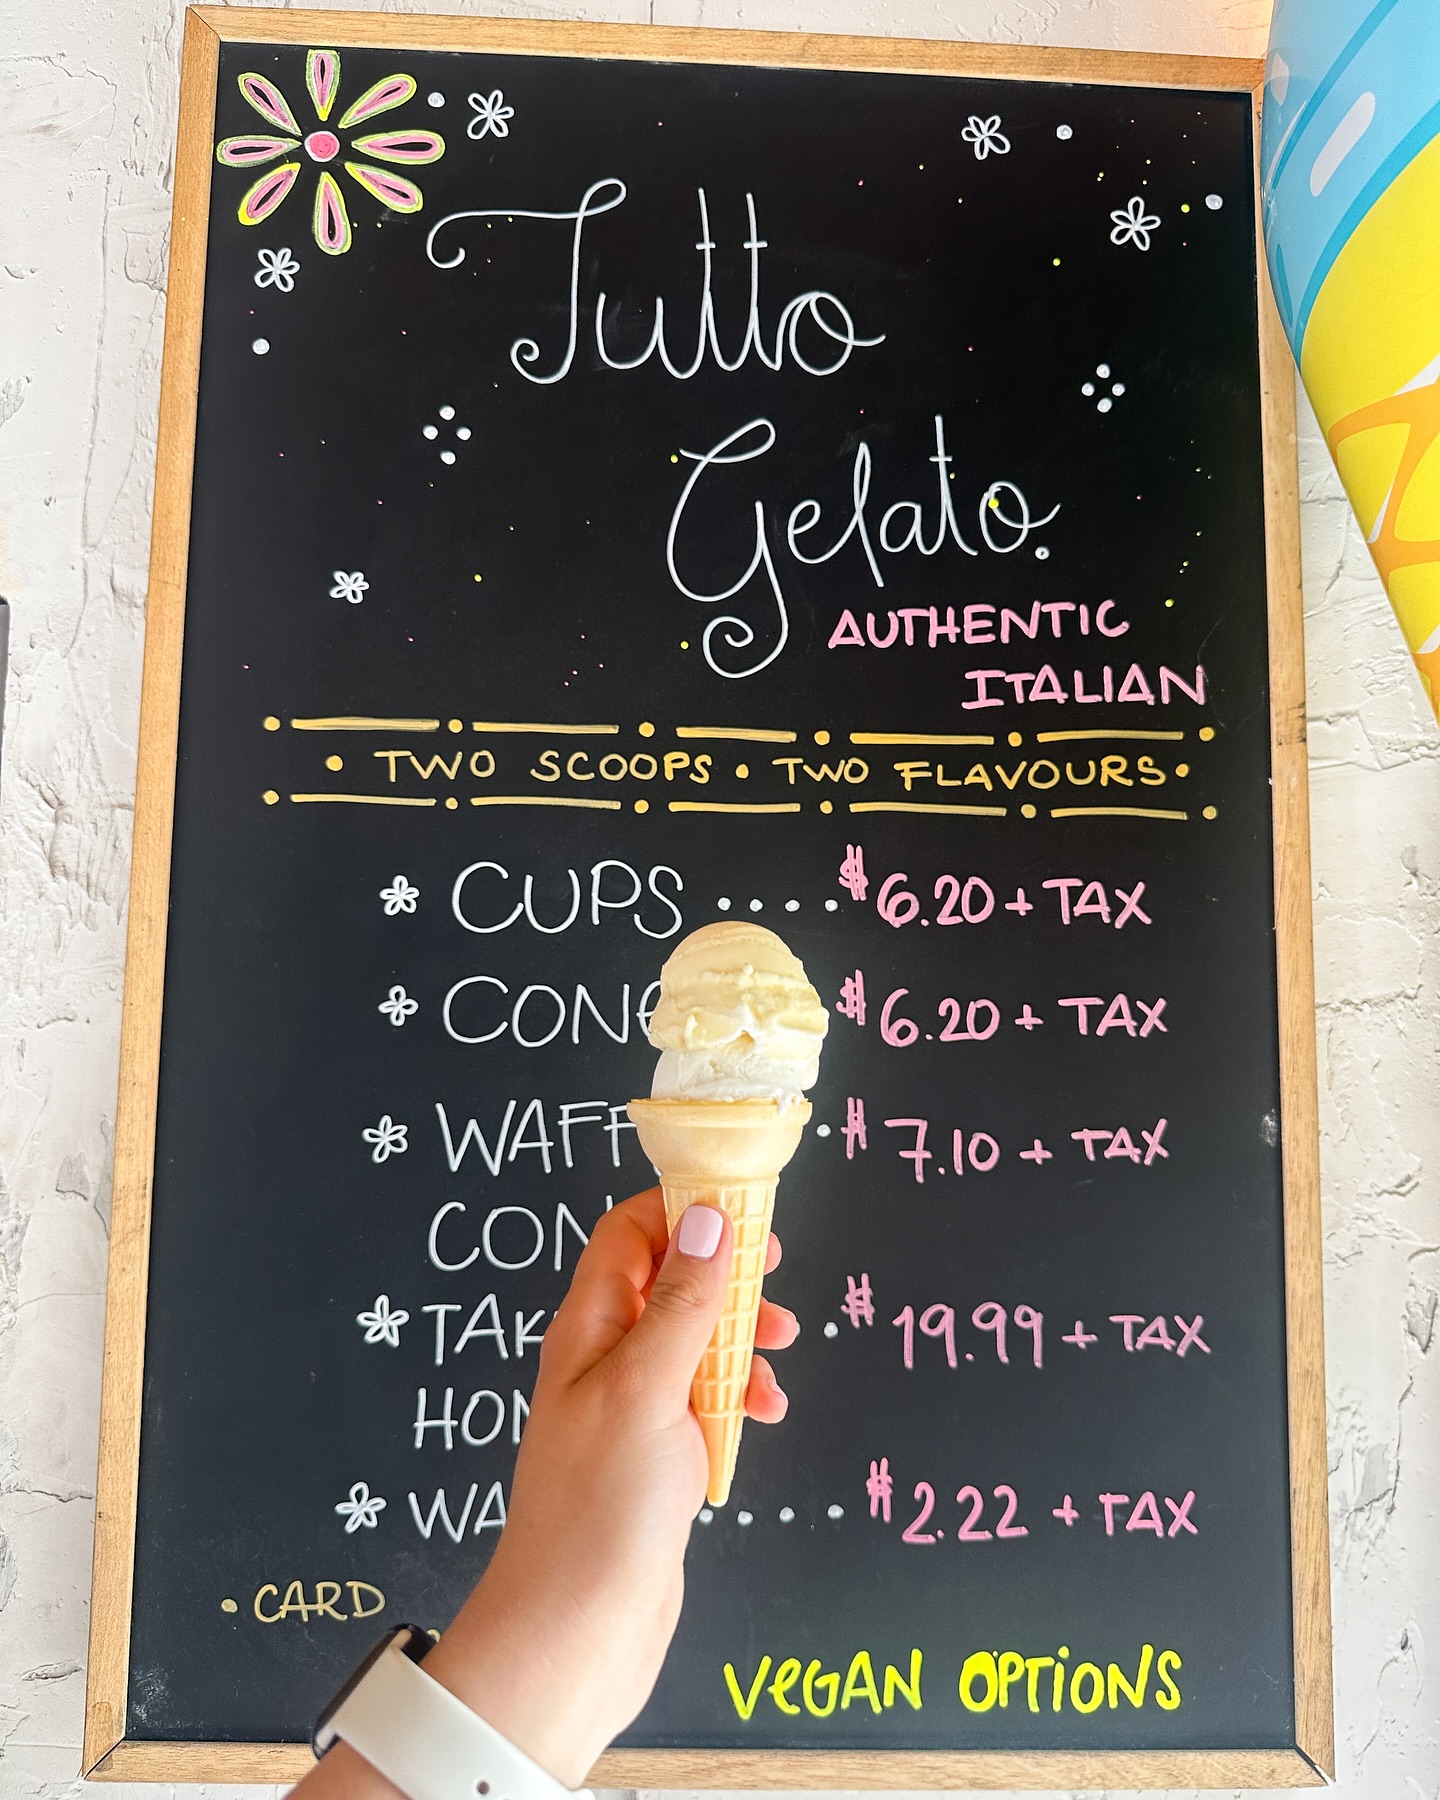 Tutto
Gelato.
AUTHENTIC
ITALIAN
• TWO SCOOPS • TWO FLAVOURS •
CUPS ....$6.20 + TAX
$6.20 + TAX
$7.10 + TAX
$19.99 + TAX
....$2.22 + TAX
• CARD
VEGAN OPTIONS